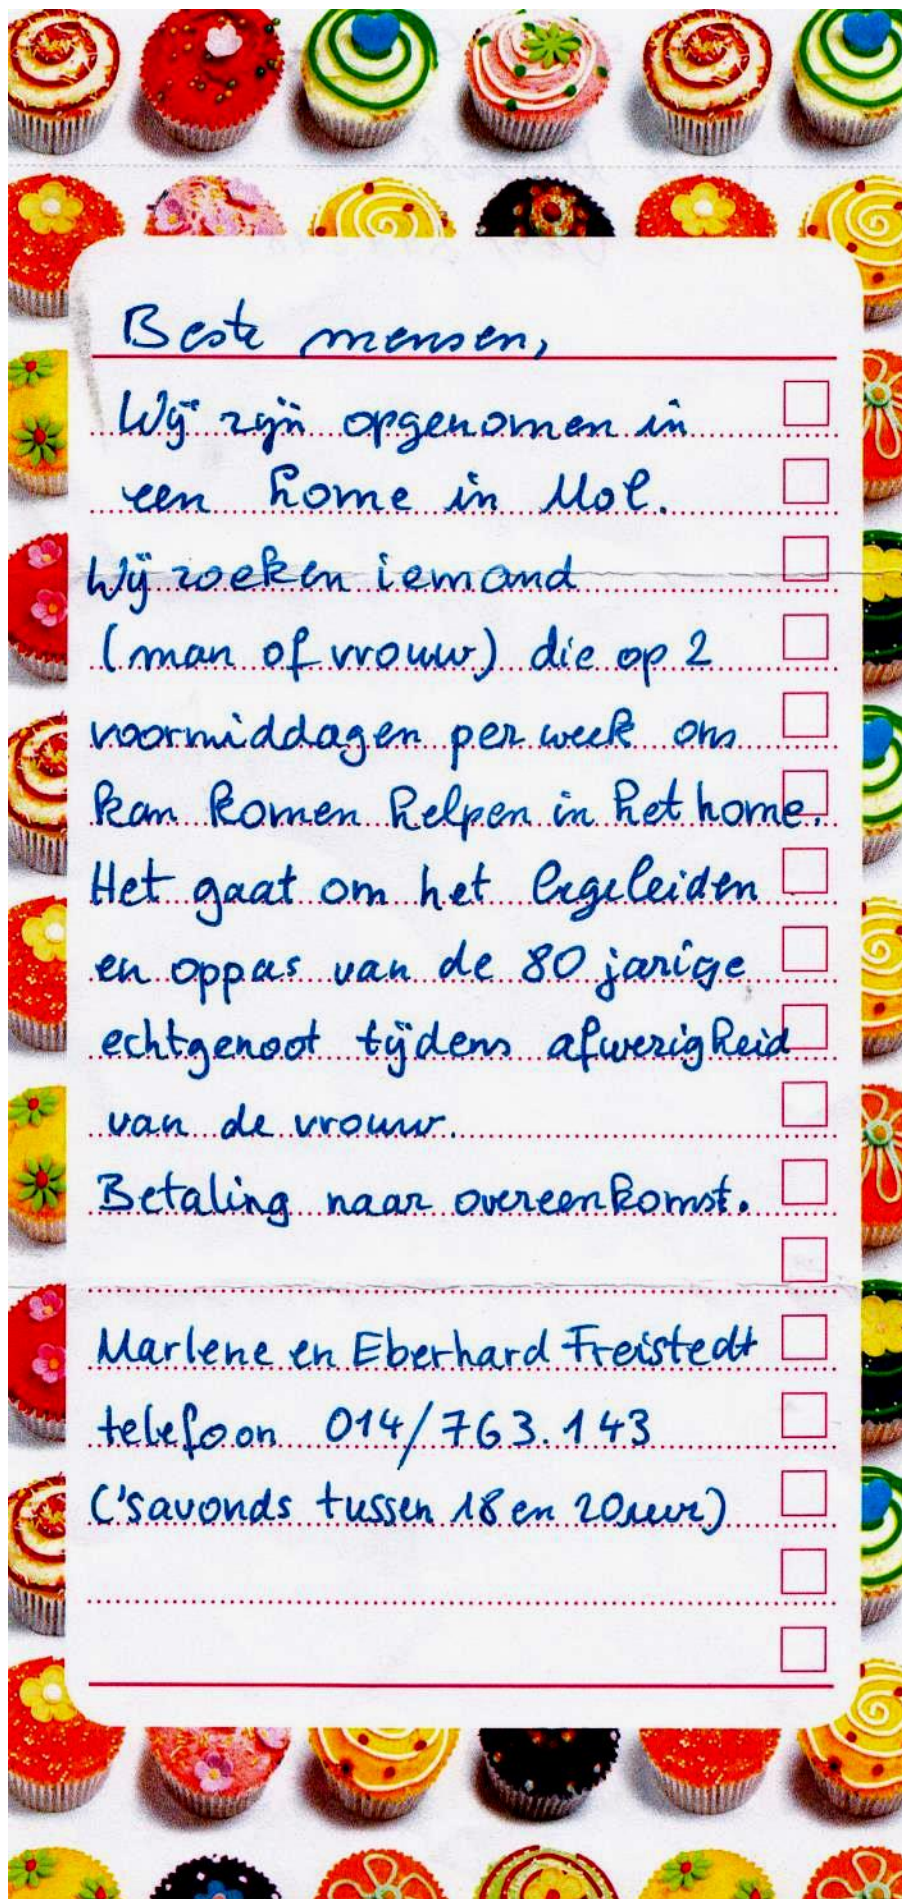 Beste mensen,
Wij zijn opgenomen in
een home in Mol.
Wij zoeken iemand
(man of vrouw) die op 2
voormiddagen per week ons
kan komen helpen in het home.
Het gaat om het begeleiden
en oppas van de 80 jarige
echtgenoot tijdens afwezigheid
van de vrouw.
Betaling naar overeenkomst.
Marlene en Eberhard Freistedt
telefoon 014/763.143
('s avonds tussen 18 en 20 uur)